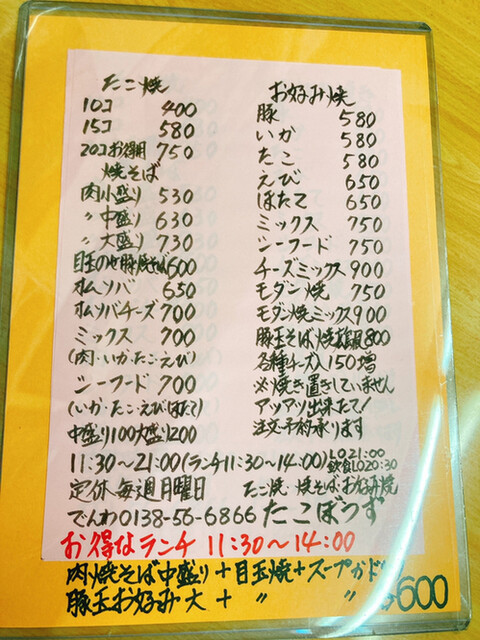 たこ焼
10コ 400
15コ 580
20コお得用 750
焼そば
肉小盛り 530
〃中盛り 630
〃大盛り 730
目玉のせ豚焼そば 600
オムソバ 650
オムソバチーズ 700
ミックス 700
(肉・いか・たこ・えび)
シーフード 700
(いか・たこ・えび・ほたて)
中盛り100大盛り200
お好み焼
豚 580
いか 580
たこ 580
えび 650
ほたて 650
ミックス 750
シーフード 750
チーズミックス 900
モダン焼 750
モダン焼ミックス 900
豚玉そば焼 800
各種チーズ入150増
※焼き置きしていません
アツアツ出来たて!
注文・予約承ります
11:30〜21:00(ランチ11:30〜14:00) LO21:00
飲食LO20:30
定休・毎週月曜日 たこ焼・焼そば・お好み焼
でんわ0138-56-6866 たこぼうず
お得なランチ 11:30〜14:00
肉焼そば中盛り+目玉焼+スープ
豚玉お好み大 + 〃 〃 600